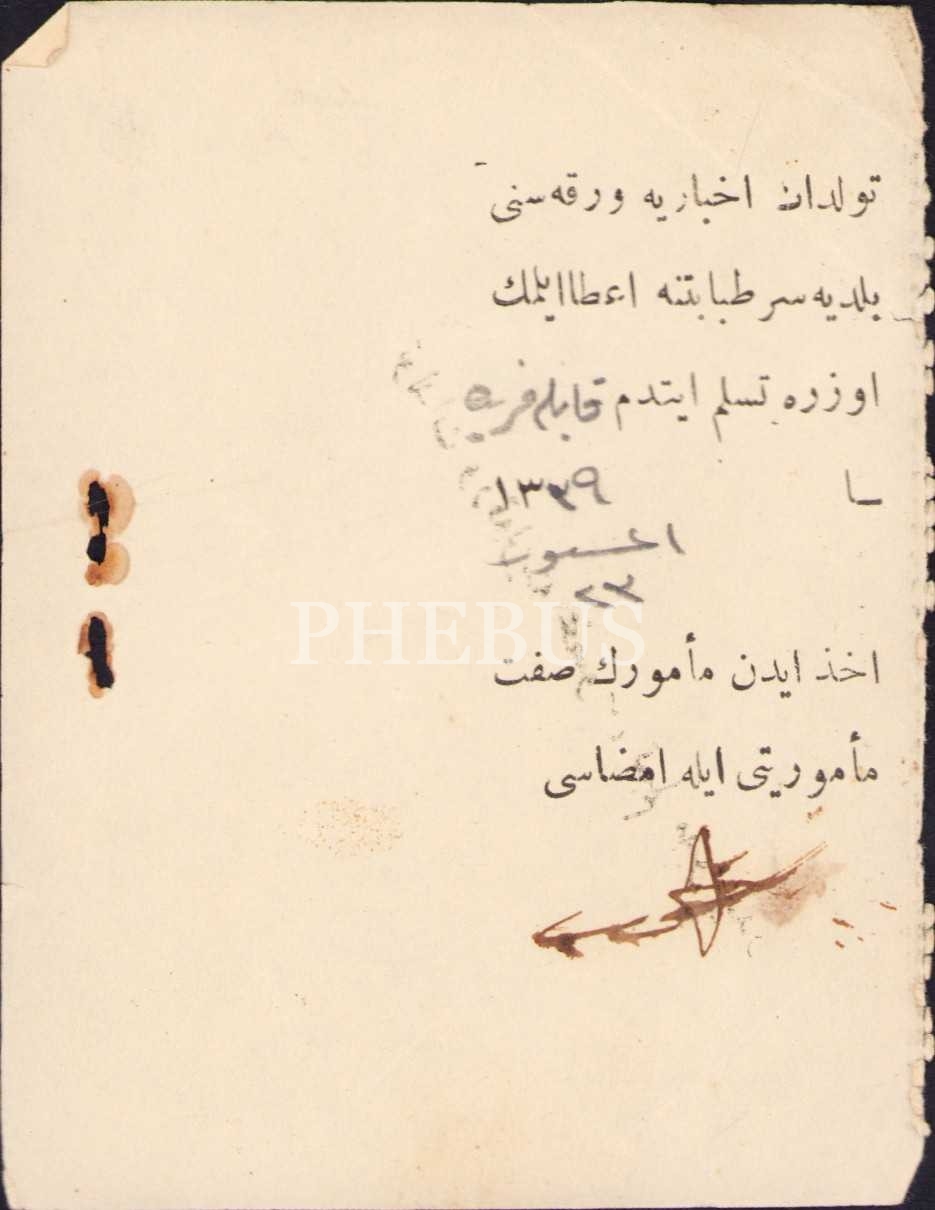 تولدات اخباریه ورقه‌سنی
بلدیه سر طبابتنه اعطا ایلمك
اوزره تسلم ایتدم قابله فریه
سا ١٣٣٩
اغستوس
٢٣
PHEBUS
اخذ ایدن مأمورك صفت
مأموریتی ایله امضاسی